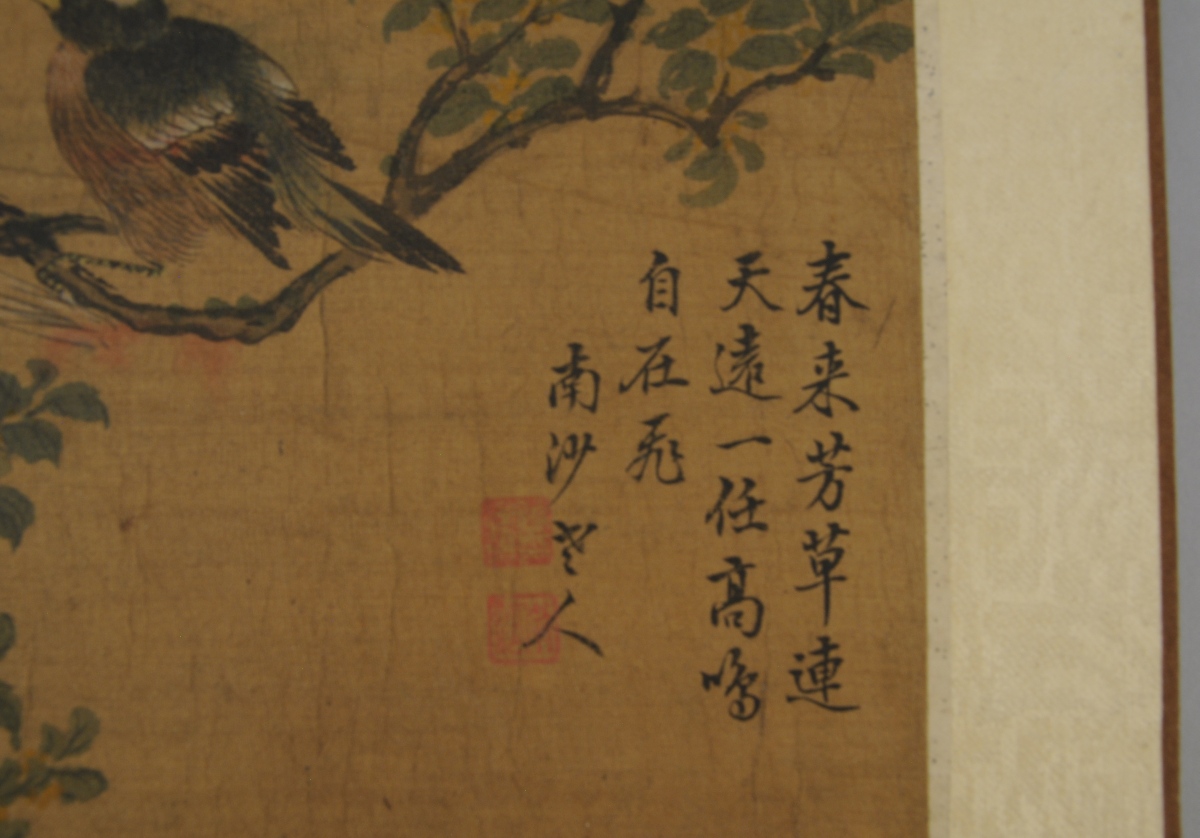 春来芳草連
天遠一任髙鳴
自在飛
南沙老人